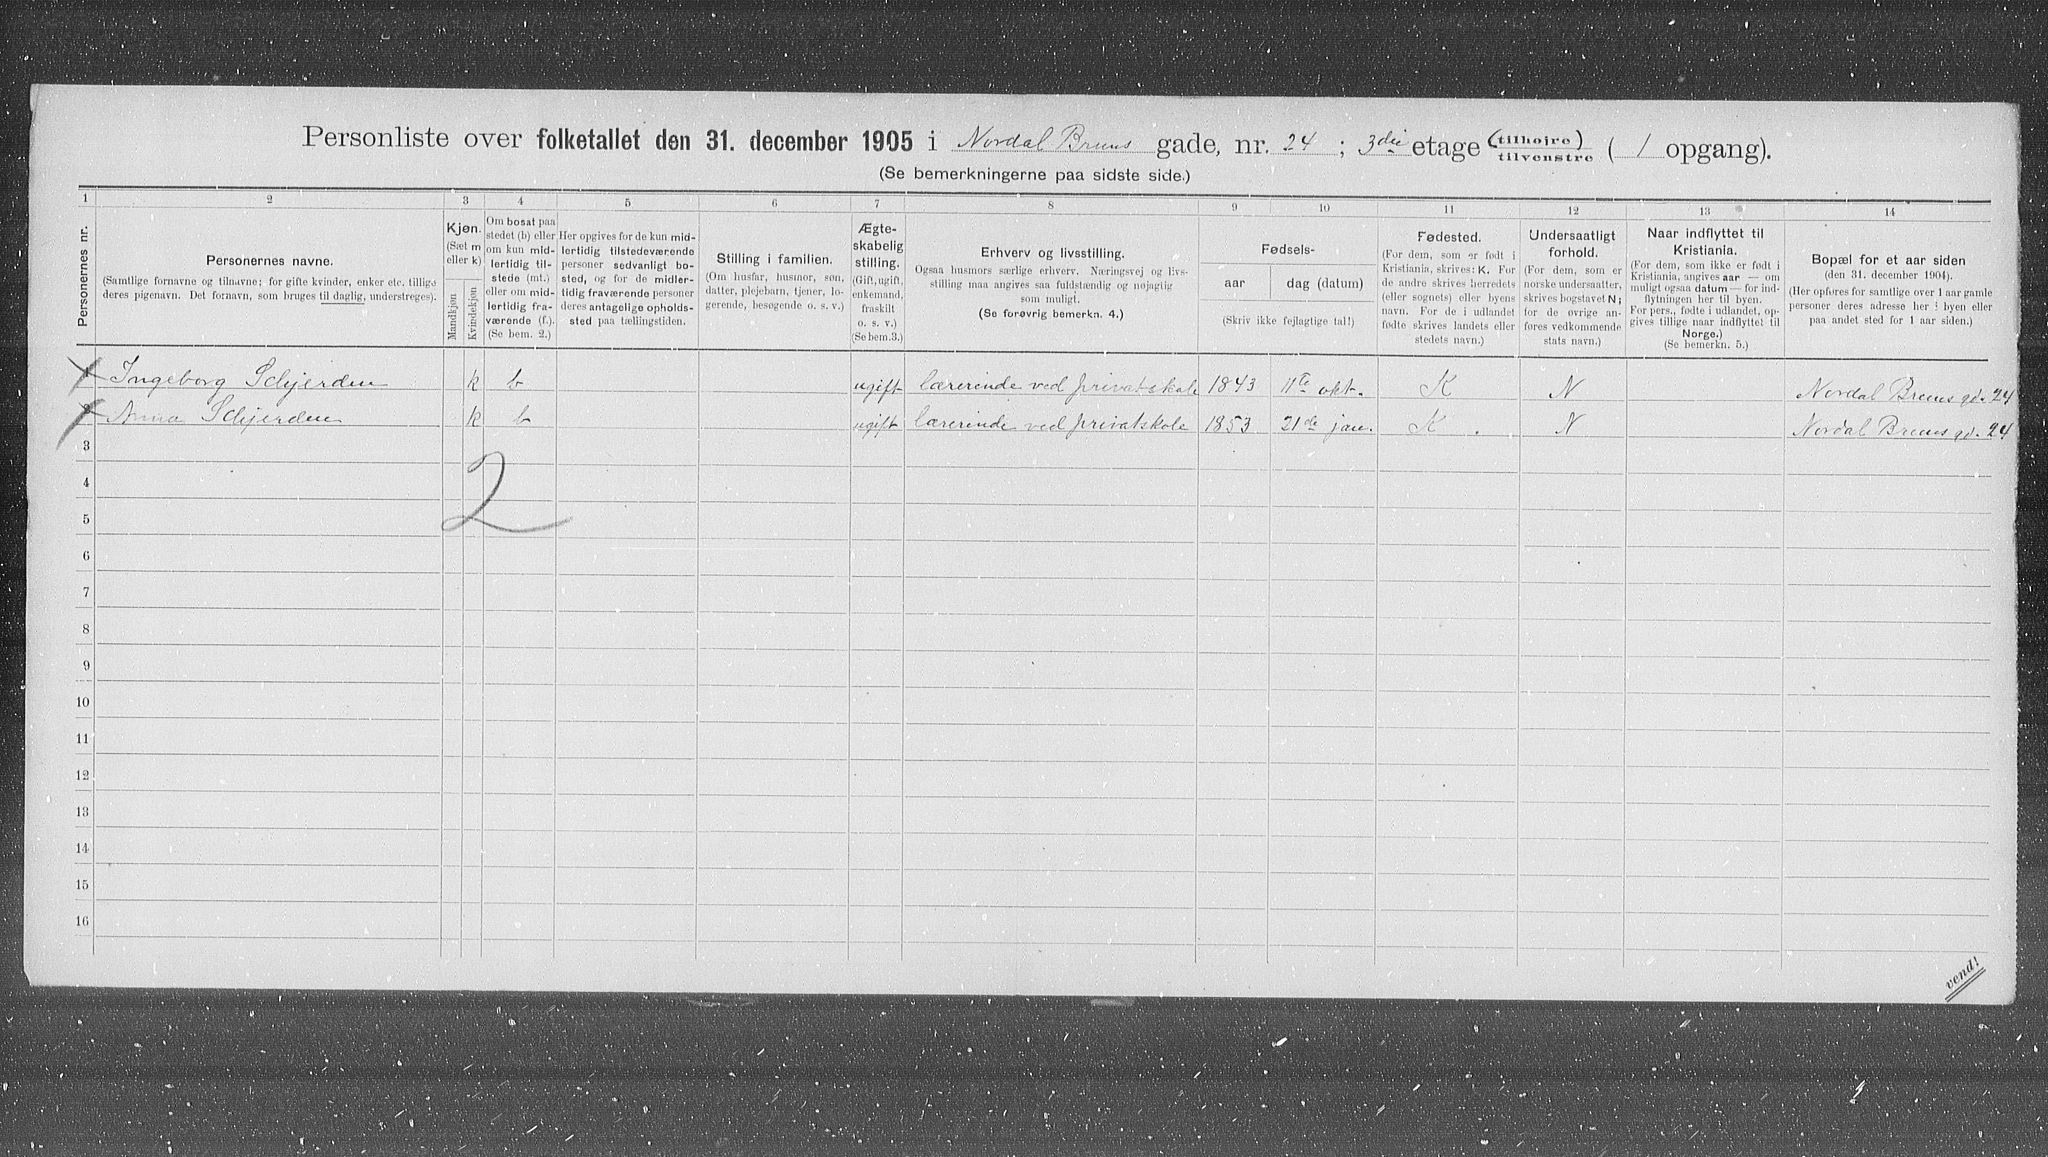 Personliste over folketallet den 31. december 1905 i Nordal Bruns gade, nr. 24 ; 3die etage (tilhøire) tilvenstre ( 1 opgang).
(Se bemerkningerne paa sidste side.)
1 2 3 4 5 6 7 8 9 10 11 12 13 14
Personernes nr.
Personernes navne.
(Samtlige fornavne og tilnavne; for gifte kvinder, enker etc. tillige
deres pigenavn. Det fornavn, som bruges til daglig, understreges).
Kjøn.
(Sæt m
eller k)
Mandkjøn
Kvindekjøn
Om bosat paa
stedet (b) eller
om kun mid-
lertidig til-
stede (mt.)
eller om mid-
lertidig fra-
værende (f.).
(Se bem. 2.)
Her opgives for de kun mid-
lertidig tilstedeværende
personer sedvanligt bo-
sted, og for de midler-
tidig fraværende personer
deres antagelige opholds-
sted paa tællingstiden.
Stilling i familien.
(Om husfar, husmor, søn,
datter, plejebarn, tjener, lo-
gerende, besøgende o. s. v.)
Ægte-
skabelig
stilling.
(Gift, ugift,
enkemand,
fraskilt
o. s. v.)
(Se bem. 3.)
Erhverv og livsstilling.
Ogsaa husmors særlige erhverv. Næringsvej og livs-
stilling maa angives saa fuldstændig og nøjagtig
som muligt.
(Se forøvrig bemerkn. 4.)
Fødsels-
aar dag (datum)
(Skriv ikke fejlagtige tal!)
Fødested.
(For dem, som er født i
Kristiania, skrives: K. For
de andre skrives herredets
(eller sognets) eller byens
navn. For de i udlandet
fødte skrives landets eller
stedets navn.)
Undersaatligt
forhold.
(For dem, som er
norske undersaatter,
skrives bogstavet N;
for de øvrige an-
føres vedkommende
stats navn.)
Naar indflyttet til
Kristiania.
(For dem, som ikke er født i
Kristiania, angives aar — om
muligt ogsaa datum — for ind-
flytningen her til byen.
For pers., fødte i udlandet, op-
gives tillige naar indflyttet til
Norge.)
(Se bemerkn. 5.)
Bopæl for et aar siden
(den 31. december 1904).
(Her opføres for samtlige over 1 aar gamle
personer deres adresse her i byen eller
paa andet sted for 1 aar siden.)
1 Ingeborg Schjerden k b ugift lærerinde ved privatskole 1843 11te okt. K N Nordal Bruns gd. 24
2 Anna Schjerden k b ugift lærerinde ved privatskole 1853 21de jan. K. N Nordal Bruns gd. 24
3
2
4
5
6
7
8
9
10
11
12
13
14
15
16
vend!